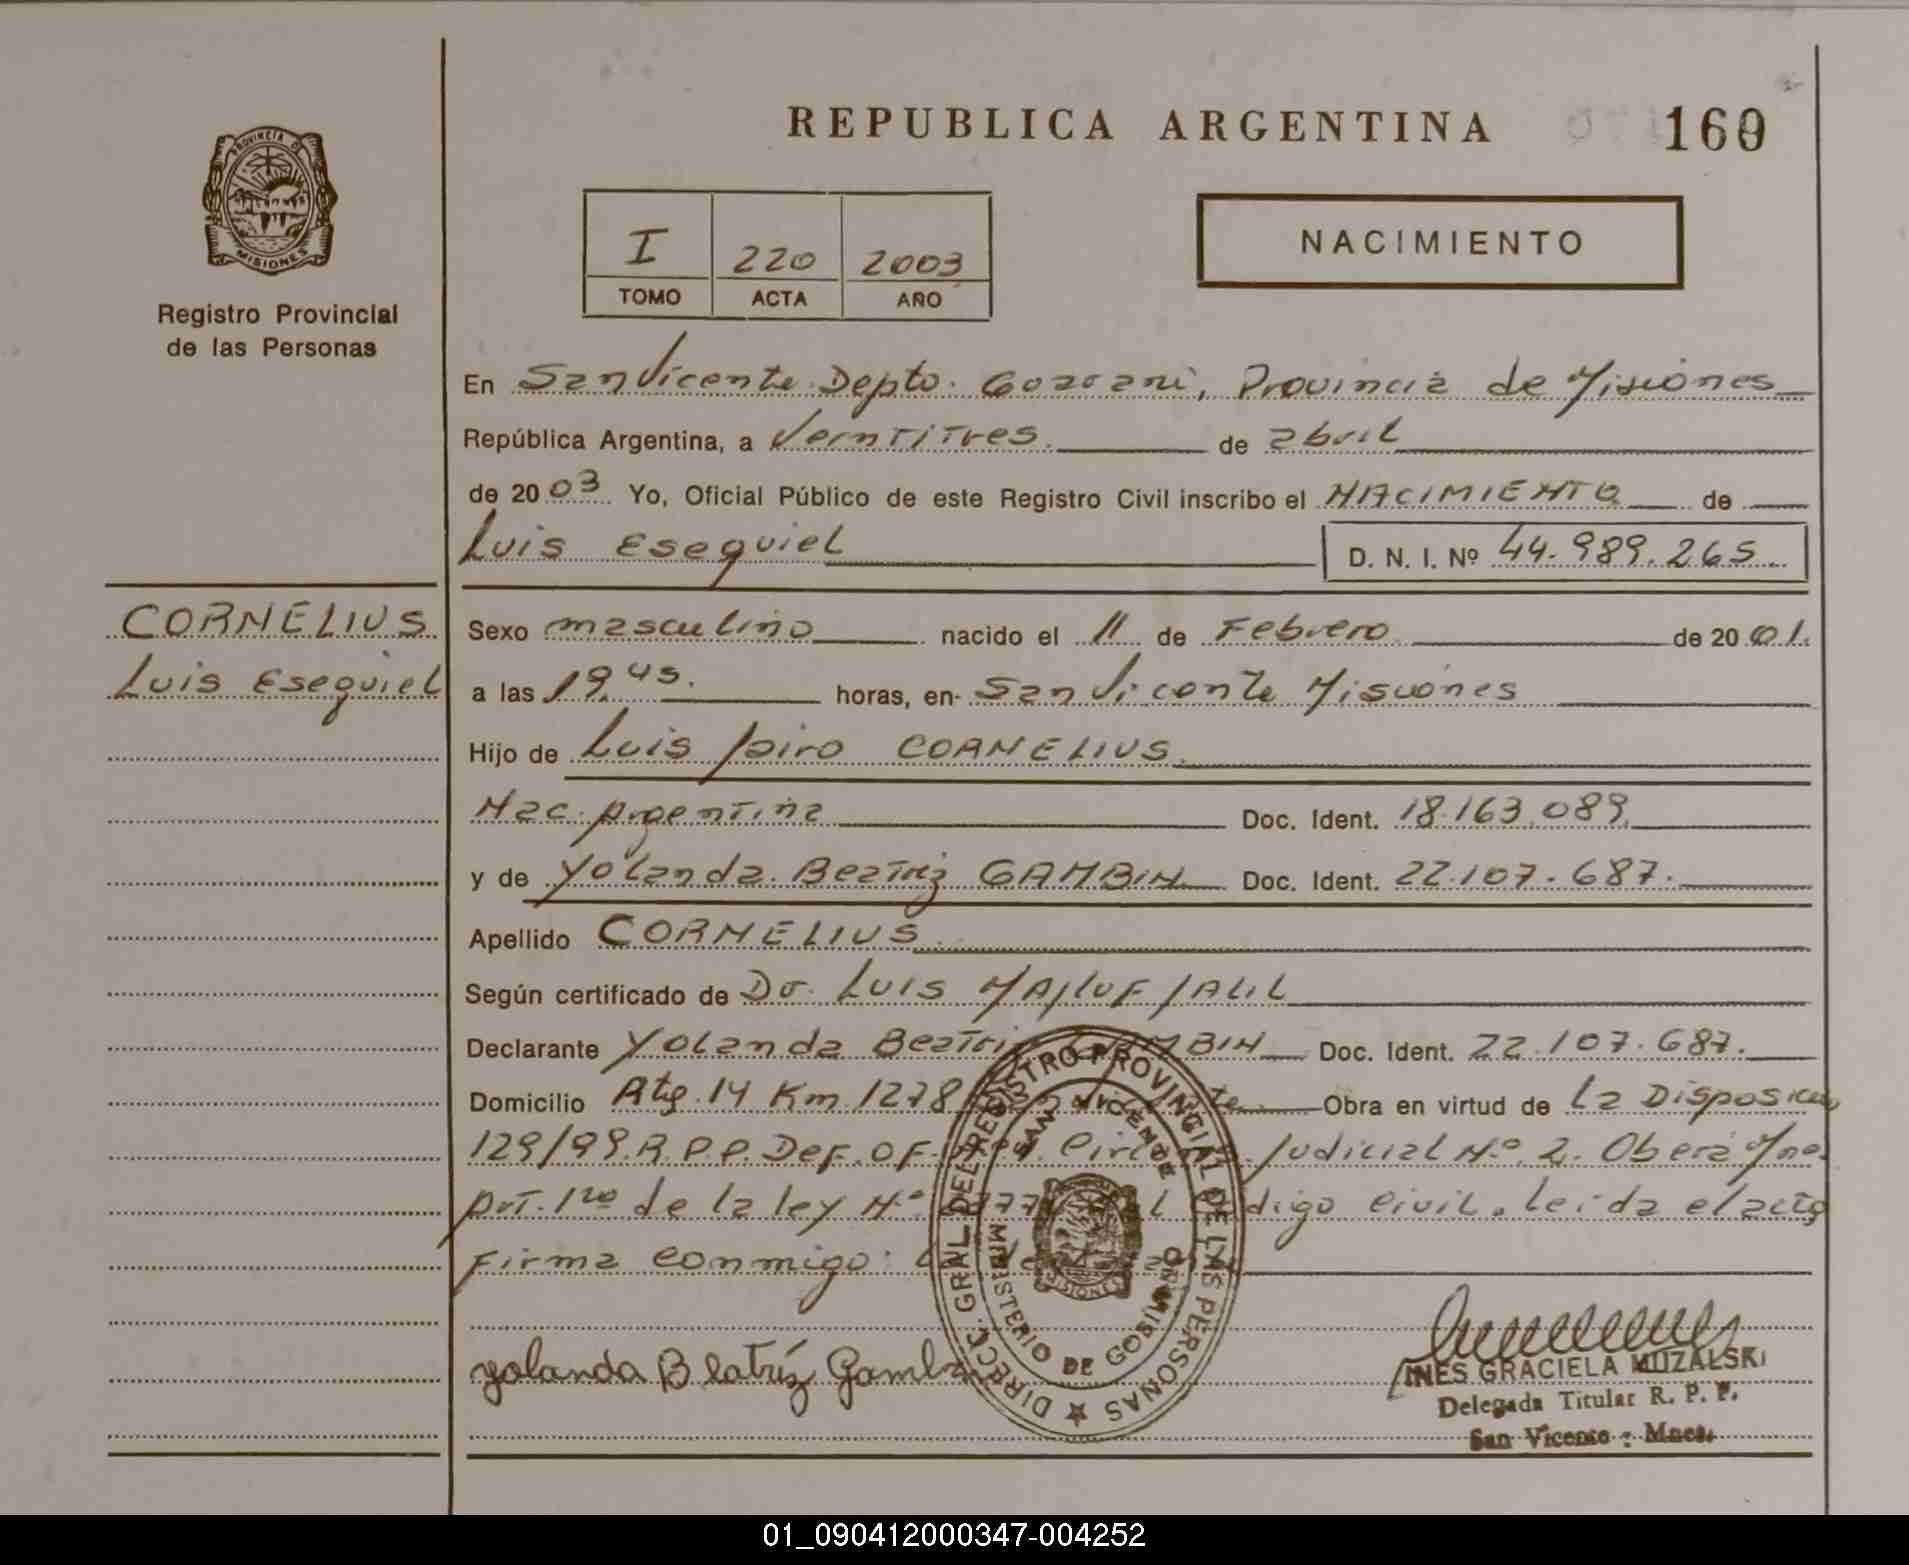 REPUBLICA ARGENTINA 160
PROVINCIA DE
MISIONES
Registro Provincial
de las Personas
I 220 2003
TOMO ACTA AÑO
NACIMIENTO
En San Vicente Depto. Guarani, Provincia de Misiones
República Argentina, a Veintitres de abril
de 2003 Yo, Oficial Público de este Registro Civil inscribo el NACIMIENTO de
Luis Esequiel D. N. I. Nº 44.989.265
CORNELIUS
Luis Esequiel
Sexo masculino nacido el 11 de Febrero de 2001.
a las 19,45. horas, en San Vicente Misiones
Hijo de Luis Jairo CORNELIUS
Nac. Argentina Doc. Ident. 18.163.089
y de Yolanda Beatriz GAMBIN Doc. Ident. 22.107.687.
Apellido CORNELIUS
Según certificado de Dr. Luis MAJLUF JALIL
Declarante Yolanda Beatriz GAMBIN Doc. Ident. 22.107.687.
Domicilio Rta. 14 Km 1278 Obra en virtud de La Disposicion
129/99.R.P.P. Def. OF. Judicial Nº 2. Oberá Mnes.
Art. 1ro de la ley Nº Codigo Civil. leida el acta
Firma conmigo:
Yolanda Beatríz Gambin
DIRECC. GRAL. DEL REGISTRO PROVINCIAL DE LAS PERSONAS
SAN VICENTE
MINISTERIO DE GOBIERNO
MISIONES
INES GRACIELA MUZALSKI
Delegada Titular R. P. P.
San Vicente - Mnes.
01_090412000347-004252